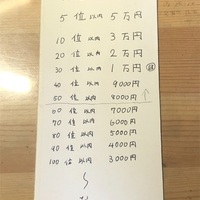 5位以内 5万円
10位以内 3万円
20位以内 2万円
30位以内 1万円
40位以内 9000円
50位以内 8000円 ↑
60位以内 7000円
70位以内 6000円
80位以内 5000円
90位以内 4000円
100位以内 3000円
〜